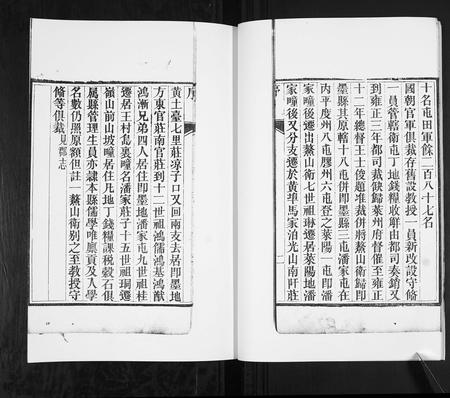 十名屯田軍餘二百八十七名
國朝官軍俱裁存舊設教授一員新改設守備
一員管轄衛屯丁地錢糧收解山都司奏銷又
到雍正三年都司裁缺歸萊州府督催至雍正
十二年總督王士俊題准裁併將鰲山衛歸即
墨縣其原轄十八屯併即墨縣三屯潘家屯在
內平度州八屯膠州六屯登之萊陽一屯即潘
家疃後遷出鰲山衛七世祖琳遷居萊陽地潘
家疃後又分支遷於黃埠馬家泊光山南阡莊
序
二
黃土臺七里莊涼子口又回南支去居即墨地
方東官莊南官莊到十二世祖鴻儒鴻基鴻猷
鴻漸兄弟四人居住即墨地潘家屯九世祖桂
遷居王村喬裏疃名潘家莊子十五世祖珦遷
嶺山前山坡疃居住凡地丁錢糧課稅穀石俱
屬縣管理生員亦隷本縣儒學唯廩貢及入學
名數仍照原額但註一鰲山衛別之至教授守
備等俱裁見郡志
序